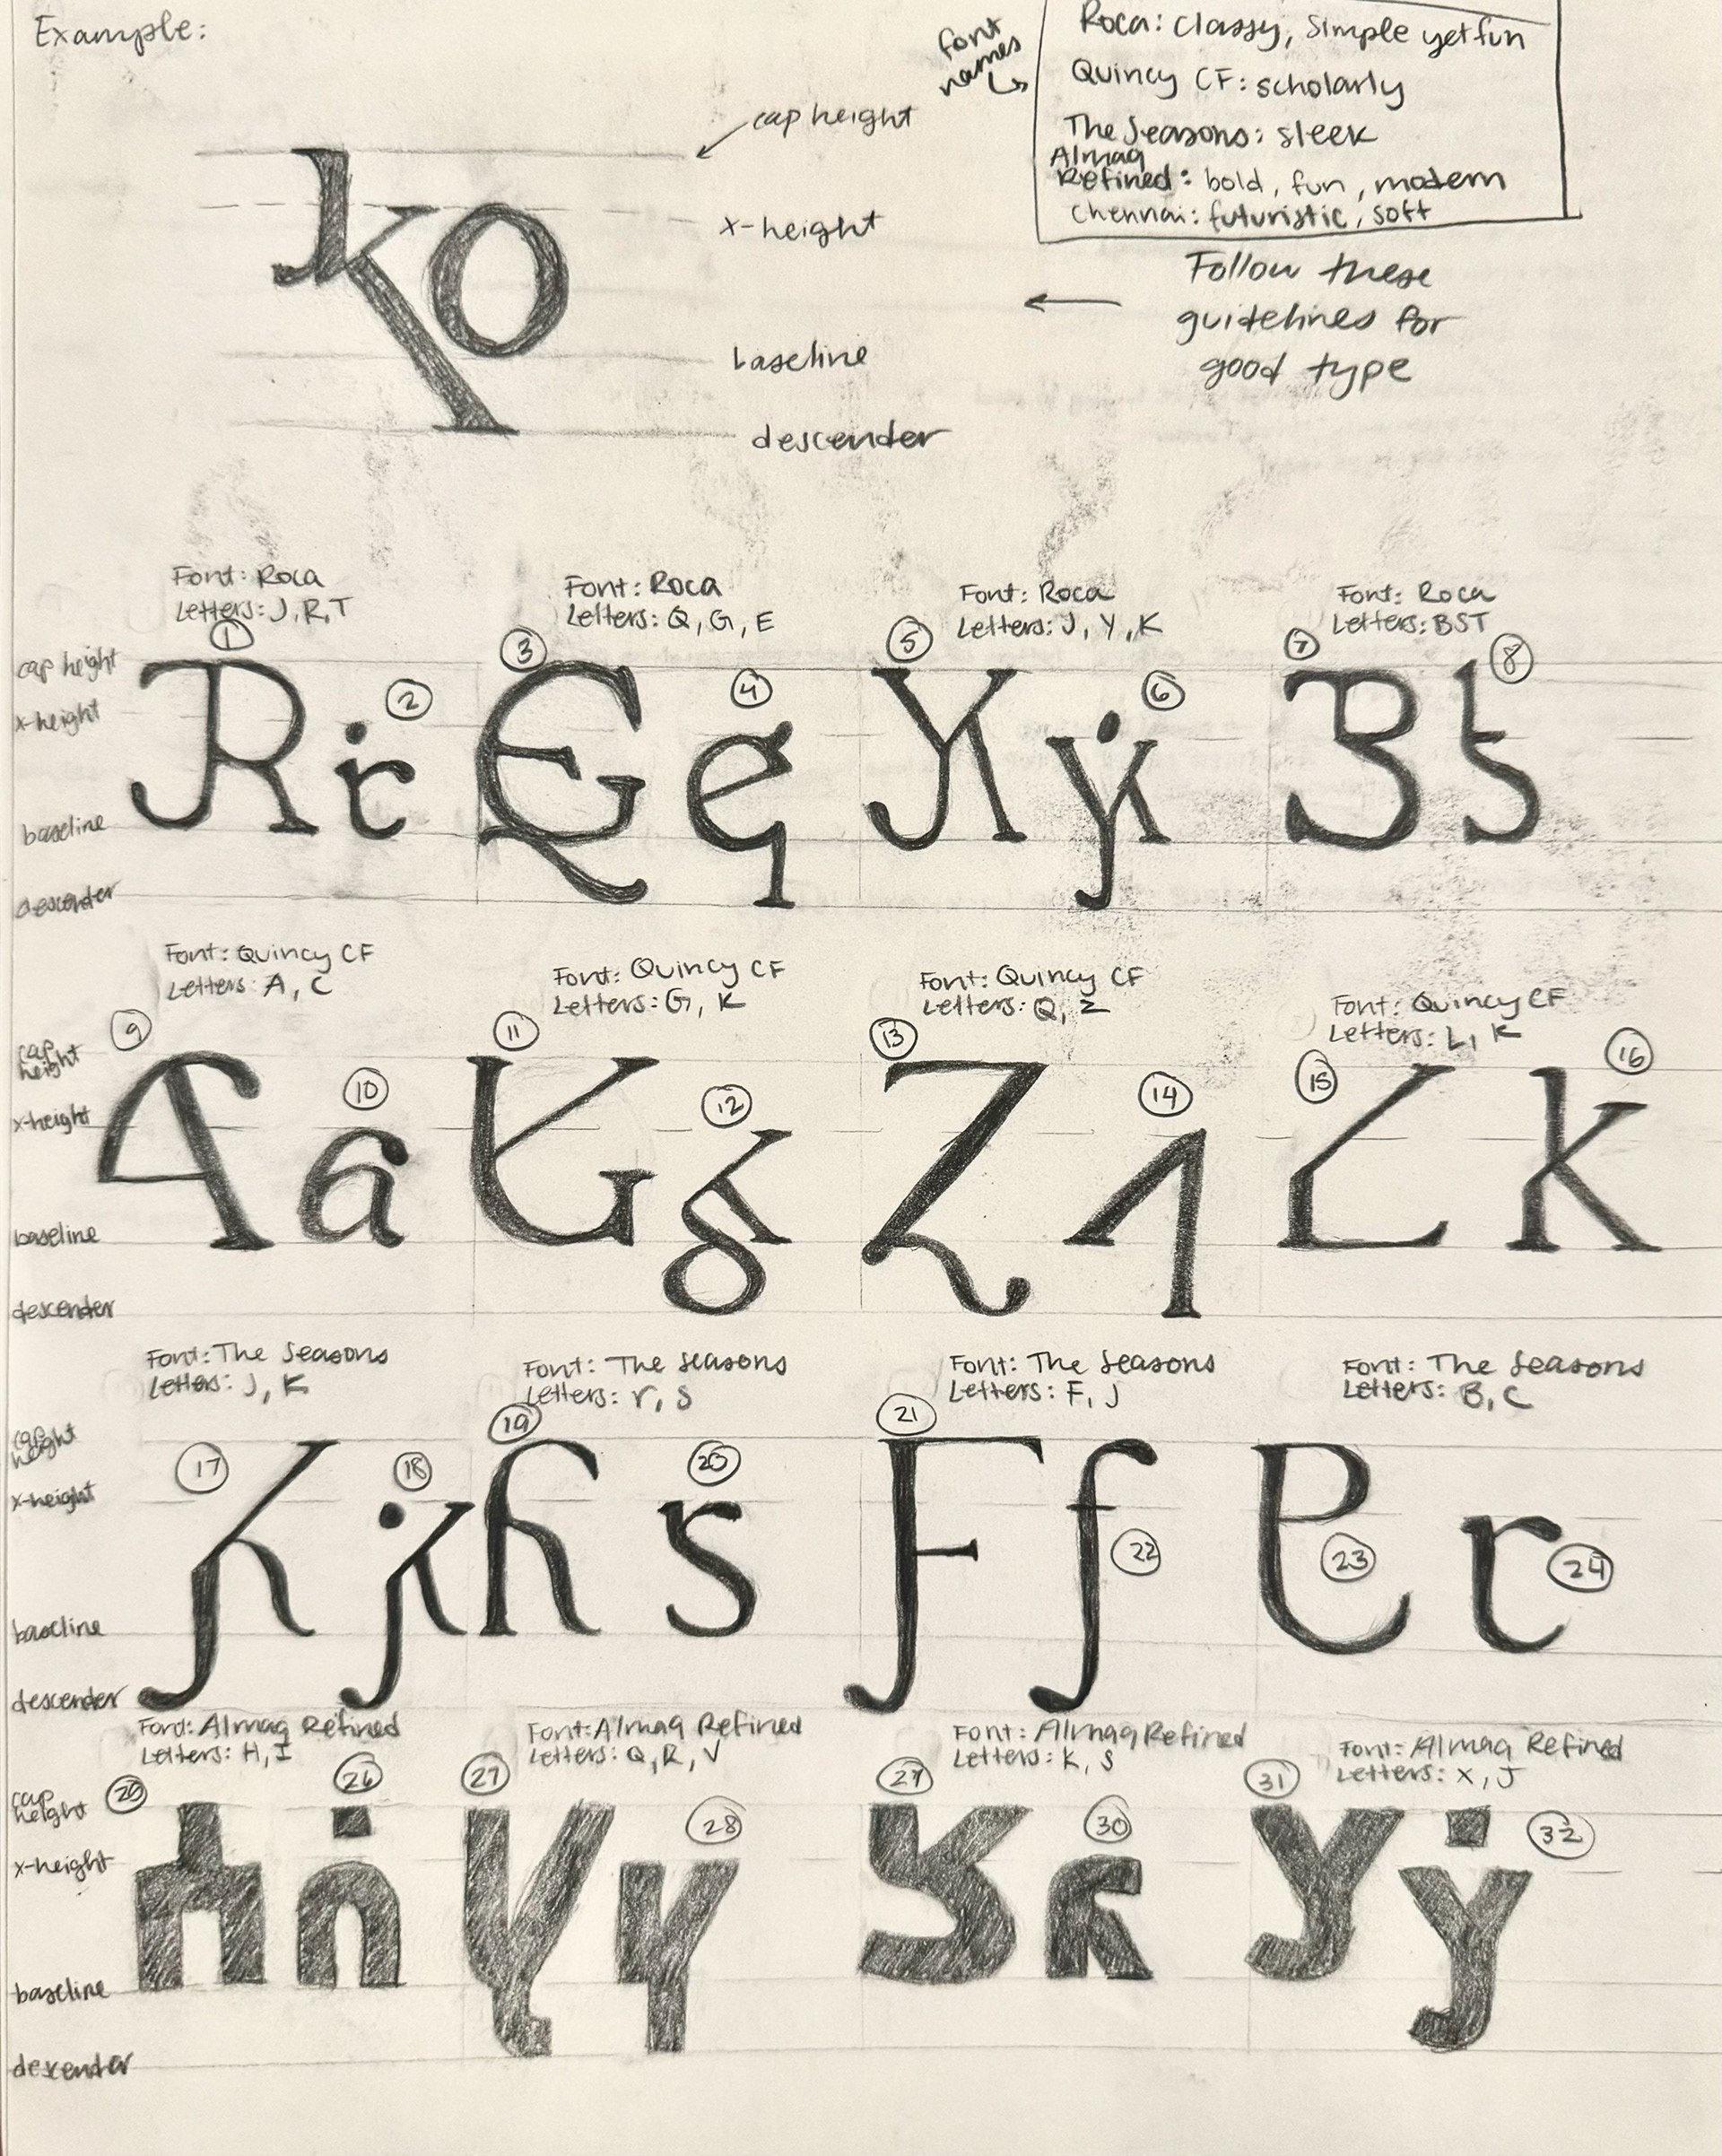 Example:
font names
Roca: classy, simple yet fun
Quincy CF: scholarly
The Seasons: sleek
Almaq Refined: bold, fun, modern
Chennai: futuristic, soft
cap height
x-height
baseline
descender
Follow these
guidelines for
good type
Font: Roca
Letters: J, R, T
Font: Roca
Letters: Q, G, E
Font: Roca
Letters: J, Y, K
Font: Roca
Letters: BST
cap height
x-height
baseline
descender
1
2
3
4
5
6
7
8
Font: Quincy CF
Letters: A, C
Font: Quincy CF
Letters: G, K
Font: Quincy CF
Letters: Q, Z
Font: Quincy CF
Letters: L, K
cap height
x-height
baseline
descender
9
10
11
12
13
14
15
16
Font: The Seasons
Letters: J, K
Font: The Seasons
Letters: r, s
Font: The Seasons
Letters: F, J
Font: The Seasons
Letters: B, C
cap height
x-height
baseline
descender
17
18
19
20
21
22
23
24
Font: Almaq Refined
Letters: H, I
Font: Almaq Refined
Letters: Q, R, V
Font: Almaq Refined
Letters: K, S
Font: Almaq Refined
Letters: X, J
cap height
x-height
baseline
descender
26
27
28
30
31
32